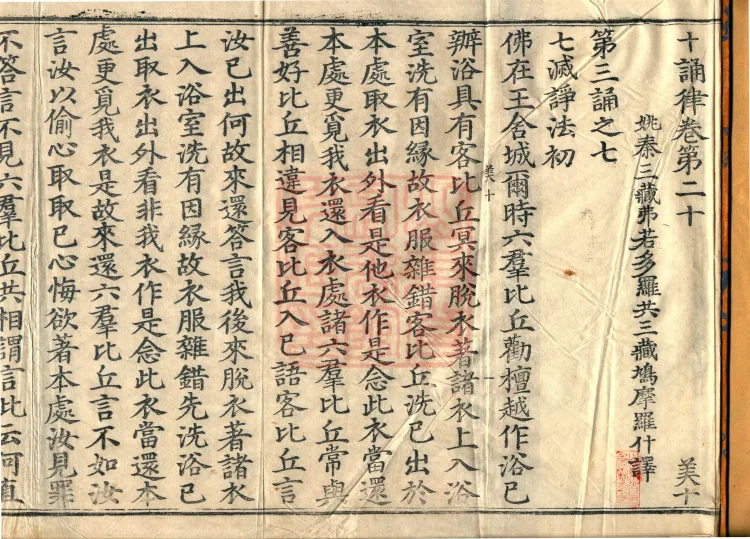 十誦律卷第二十 美十
姚秦三藏弗若多羅共三藏鳩摩羅什譯
第三誦之七
七滅諍法初
佛在王舍城爾時六羣比丘勸檀越作浴已
美十
辦浴具有客比丘冥來脫衣著諸衣上入浴
室洗有因緣故衣服雜錯客比丘洗已出於
本處取衣出外看是他衣作是念此衣當還
本處更覓我衣還入衣處諸六羣比丘常與
善好比丘相違見客比丘入已語客比丘言
汝已出何故來還答言我後來脫衣著諸衣
上入浴室洗有因緣故衣服雜錯先洗浴已
出取衣出外看非我衣作是念此衣當還本
處更覓我衣是故來還六羣比丘言不如汝
言汝以偷心取取已心悔欲著本處汝見罪
不答言不見六羣比丘共相謂言比云何直